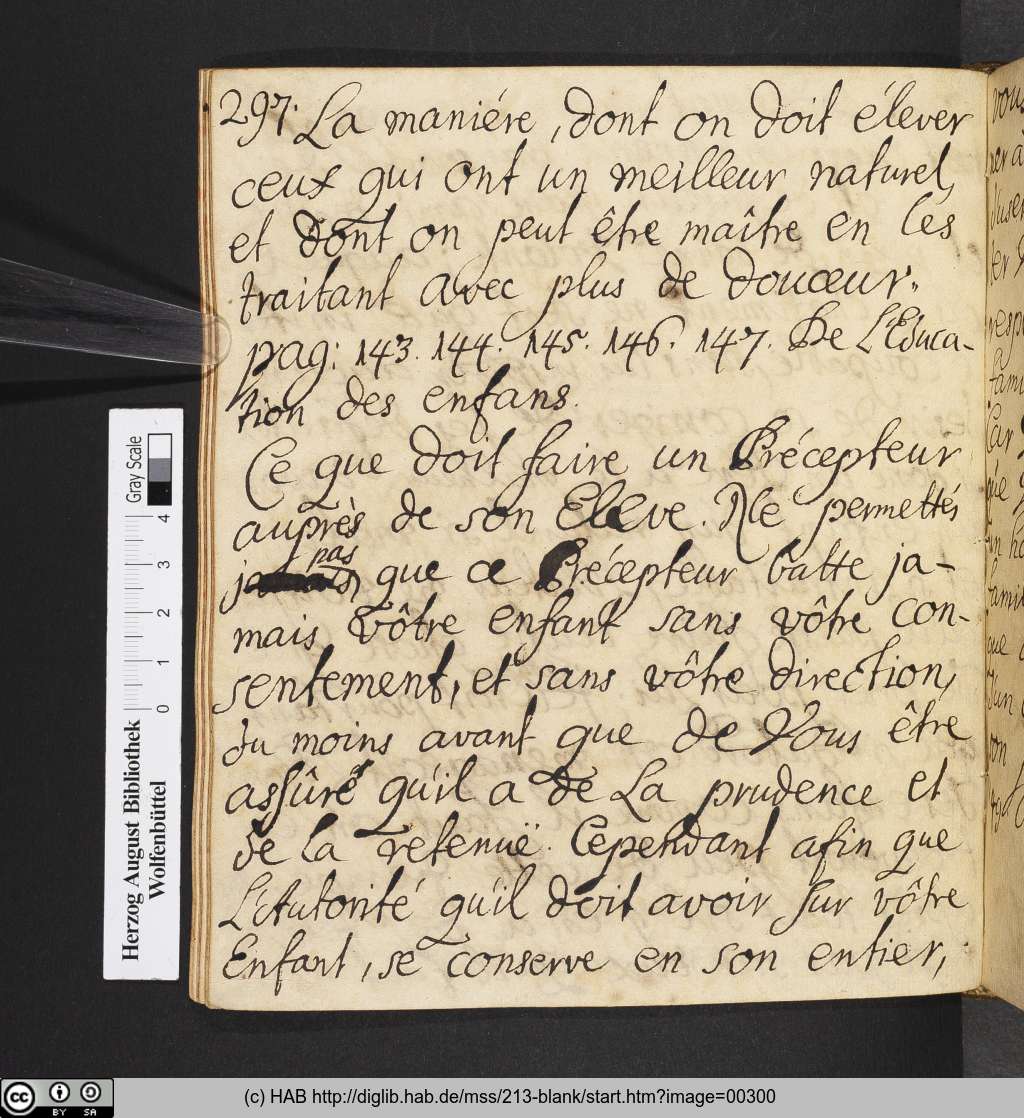 297. La maniére, dont on doit élever
ceux qui ont un meilleur naturel,
et dont on peut être maître en les
traitant avec plus de douceur.
pag: 143. 144. 145. 146. 147. De L'Educa-
tion des enfans.
Ce que doit faire un Précepteur
auprès de son Eleve. Ne permettés
pas
que ce Précepteur batte ja-
mais vôtre enfant sans vôtre con-
sentement, et sans vôtre direction,
du moins avant que de Vous être
assûré qu'il a de La prudence et
de la retenuë. Cependant afin que
L'Autorité qu'il doit avoir sur vôtre
Enfant, se conserve en son entier,
Herzog August Bibliothek
Wolfenbüttel
Gray Scale
0 1 2 3 4
cc BY SA
(c) HAB http://diglib.hab.de/mss/213-blank/start.htm?image=00300